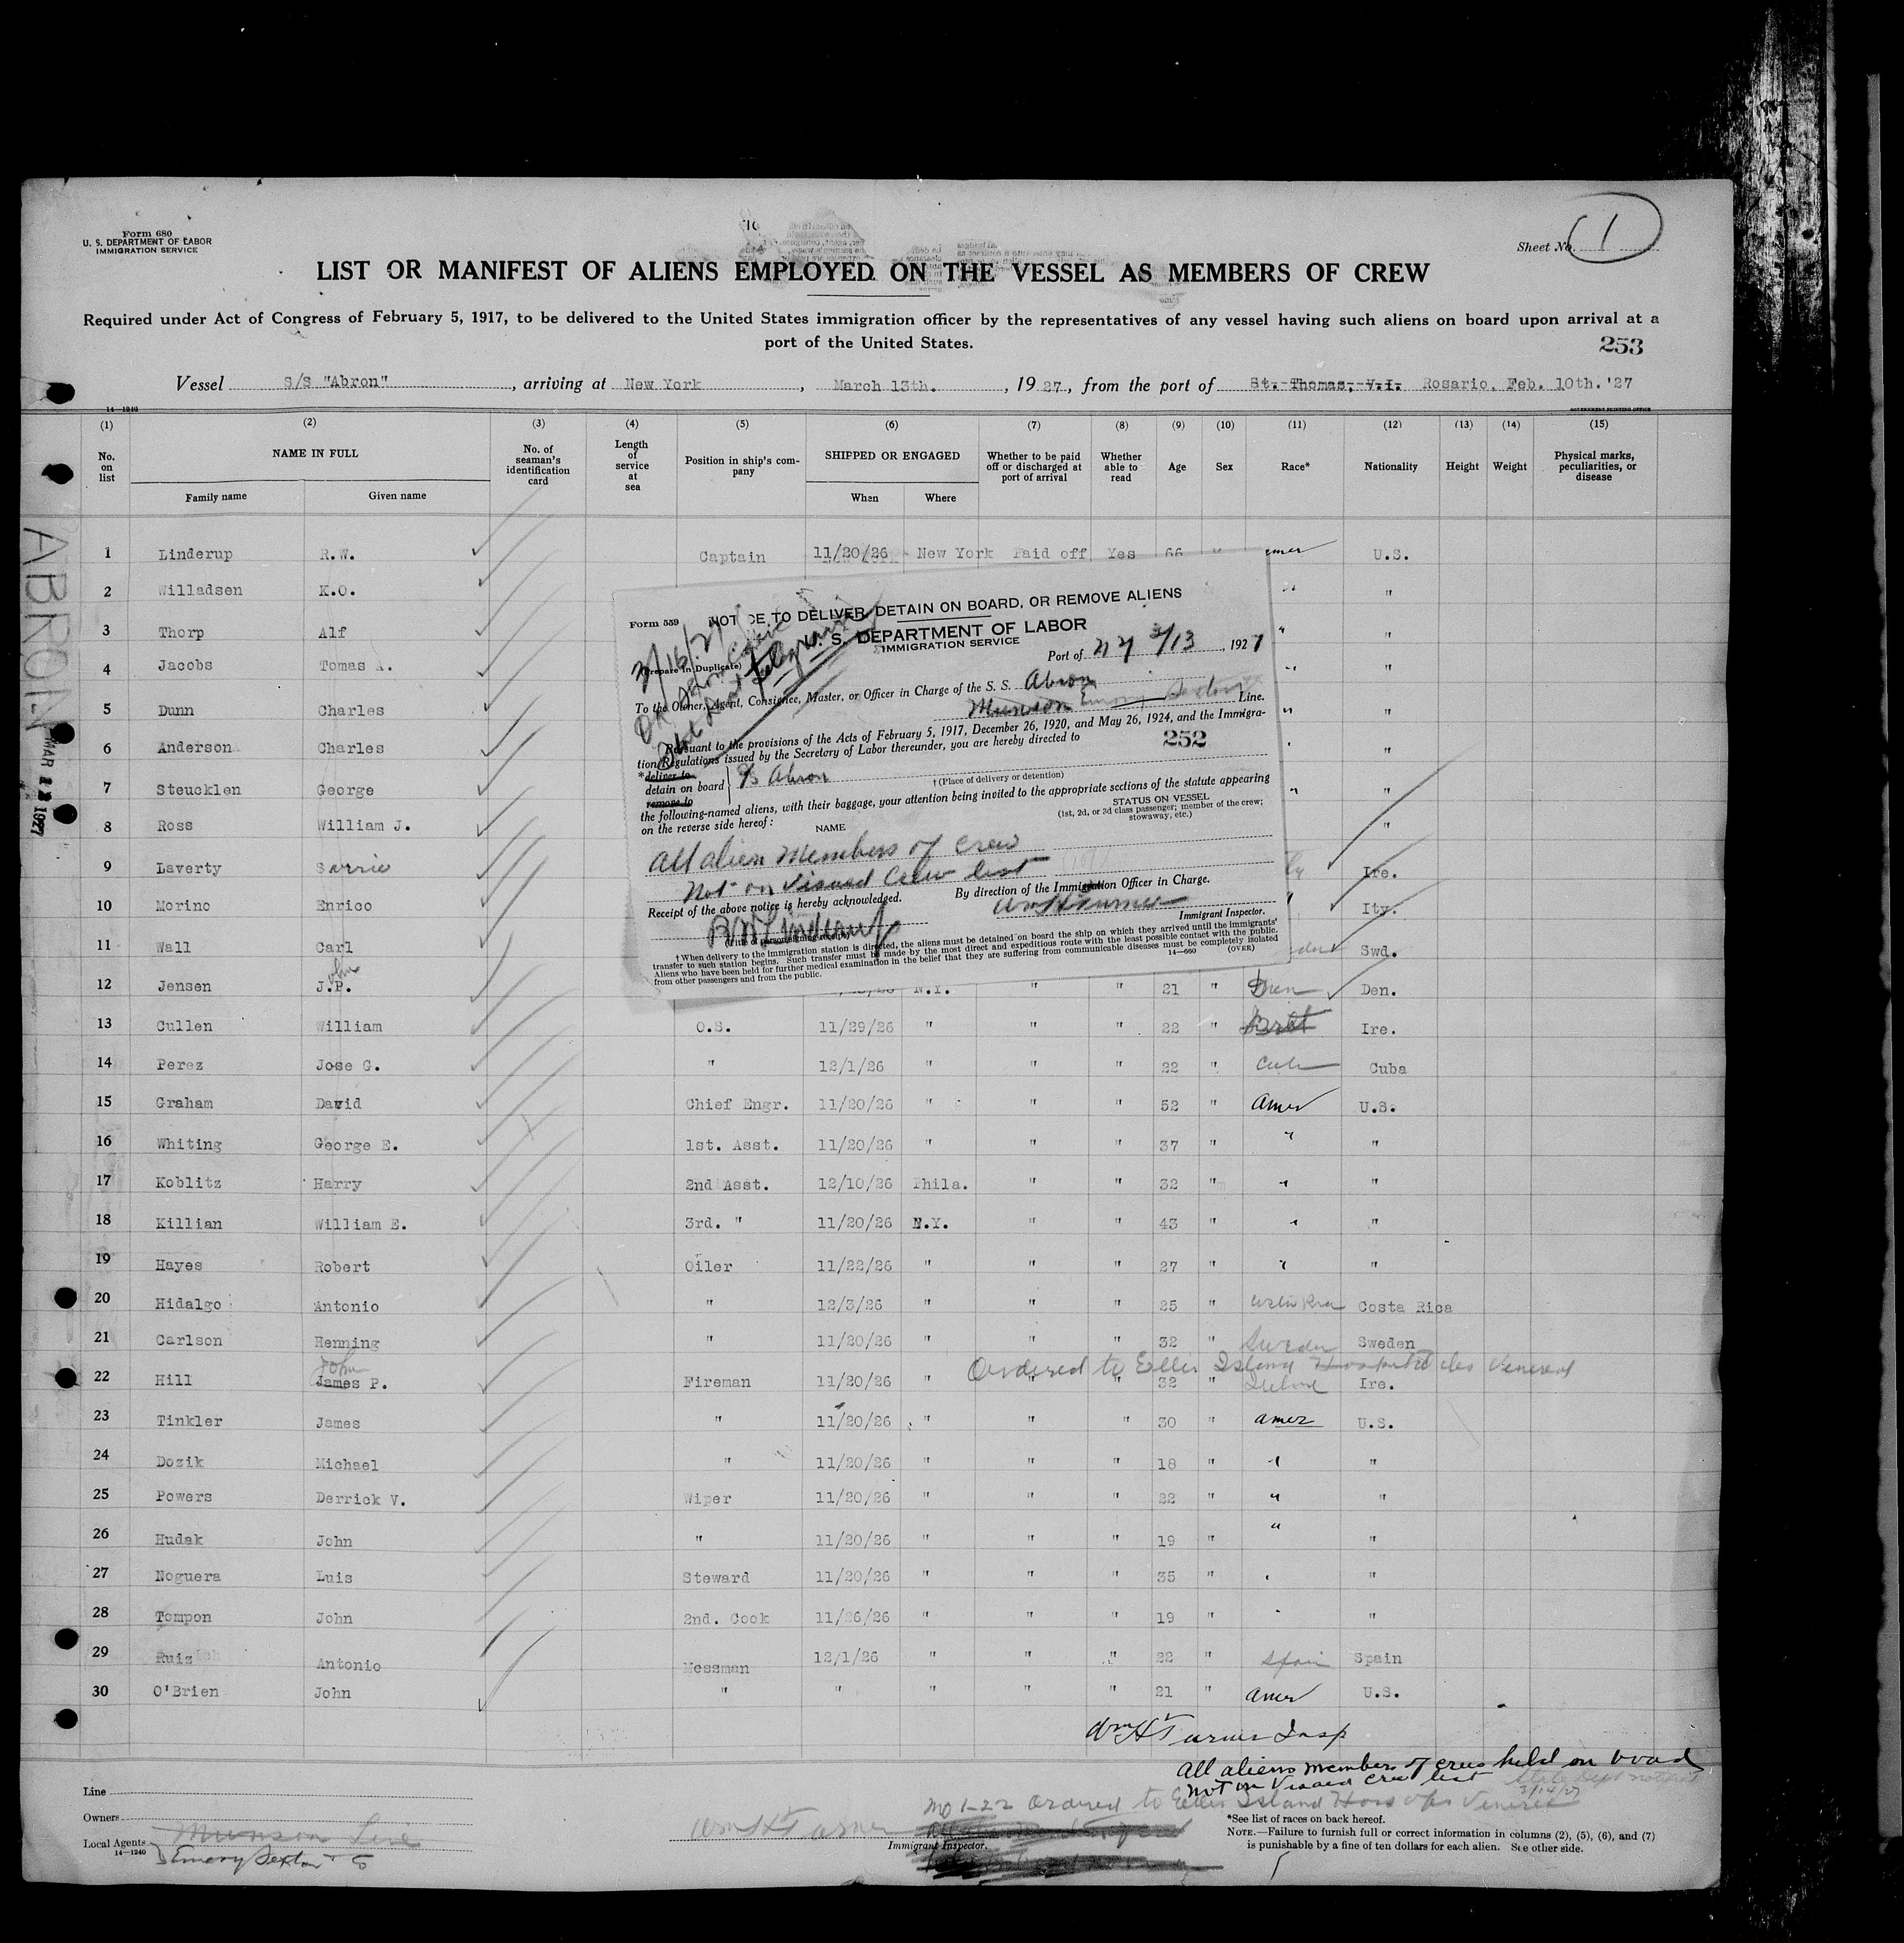 Form 680
U. S. DEPARTMENT OF LABOR
IMMIGRATION SERVICE
Sheet No. 1
LIST OR MANIFEST OF ALIENS EMPLOYED ON THE VESSEL AS MEMBERS OF CREW
Required under Act of Congress of February 5, 1917, to be delivered to the United States immigration officer by the representatives of any vessel having such aliens on board upon arrival at a
port of the United States.
253
Vessel S/S "Abron", arriving at New York, March 13th., 1927., from the port of St. Thomas, V.I. Rosario, Feb. 10th. '27
14—1240
GOVERNMENT PRINTING OFFICE
(1) (2) (3) (4) (5) (6) (7) (8) (9) (10) (11) (12) (13) (14) (15)
No. on list NAME IN FULL No. of seaman's identification card Length of service at sea Position in ship's company SHIPPED OR ENGAGED Whether to be paid off or discharged at port of arrival Whether able to read Age Sex Race* Nationality Height Weight Physical marks, peculiarities, or disease
Family name Given name When Where
ABRON
MAR 1927
1 Linderup R.W. Captain 11/20/26 New York Paid off Yes 66 U.S.
2 Willadsen K.O. "
3 Thorp Alf " "
4 Jacobs Tomas A. " "
5 Dunn Charles " "
6 Anderson Charles "
7 Steucklen George " "
8 Ross William J. "
9 Laverty Ire.
10 Morino Enrico " Ity.
11 Wall Carl Swd.
John
12 Jensen J.P. N.Y. " " 21 " Den.
13 Cullen William O.S. 11/29/26 " " " 22 " Brit Ire.
14 Perez Jose G. " 12/1/26 " " " 22 " Cuba Cuba
15 Graham David Chief Engr. 11/20/26 " " " 52 " Amer U.S.
16 Whiting George E. 1st. Asst. 11/20/26 " " " 37 " " "
17 Koblitz Harry 2nd Asst. 12/10/26 Phila. " " 32 " " "
18 Killian William E. 3rd. " 11/20/26 N.Y. " " 43 " " "
19 Hayes Robert Oiler 11/22/26 " " " 27 " " "
20 Hidalgo Antonio " 12/3/26 " " " 25 " Costa Rica
21 Carlson Henning " 11/20/26 " " " 32 " Sweden Sweden
Ordered to Ellis Island Hospital
John
22 Hill James P. Fireman 11/20/26 " " " 32 " Ireland Ire.
23 Tinkler James " 11/20/26 " " " 30 " Amer U.S.
24 Dozik Michael " 11/20/26 " " " 18 " " "
25 Powers Derrick V. Wiper 11/20/26 " " " 22 " " "
26 Hudak John " 11/20/26 " " " 19 " " "
27 Noguera Luis Steward 11/20/26 " " " 35 " " "
28 Tompon John 2nd. Cook 11/26/26 " " " 19 " " "
29 Ruiz Antonio Messman 12/1/26 " " " 22 " Spain Spain
30 O'Brien John " " " " " 21 " Amer U.S.
Form 559
NOTICE TO DELIVER, DETAIN ON BOARD, OR REMOVE ALIENS
U. S. DEPARTMENT OF LABOR
IMMIGRATION SERVICE
(Prepare in Duplicate)
3/16/27
Port of NY 3/13, 1927
To the Owner, Agent, Consignee, Master, or Officer in Charge of the S. S. Abron
Munson Line.
Pursuant to the provisions of the Acts of February 5, 1917, December 26, 1920, and May 26, 1924, and the Immigra-
tion Regulations issued by the Secretary of Labor thereunder, you are hereby directed to
252
*deliver to
detain on board } S/S Abron
remove to
†(Place of delivery or detention)
the following-named aliens, with their baggage, your attention being invited to the appropriate sections of the statute appearing
on the reverse side hereof:
NAME
STATUS ON VESSEL
(1st, 2d, or 3d class passenger; member of the crew;
stowaway, etc.)
All alien Members of Crew
Not on Visaed Crew list
Receipt of the above notice is hereby acknowledged.
By direction of the Immigration Officer in Charge.
Wm H Turner
Immigrant Inspector.
(Title of person signing receipt)
†When delivery to the immigration station is directed, the aliens must be detained on board the ship on which they arrived until the immigrants'
transfer to such station begins. Such transfer must be made by the most direct and expeditious route with the least possible contact with the public.
Aliens who have been held for further medical examination in the belief that they are suffering from communicable diseases must be completely isolated
from other passengers and from the public.
14—660 (OVER)
Wm H Turner Insp
All aliens members of crew held on board
Not on Visaed crew list
3/14/27
No 1-22 Ordered to Ellis Island
Line
Owners
Local Agents
Munson Line
14—1240
Wm H Turner
Immigrant Inspector.
*See list of races on back hereof.
NOTE.—Failure to furnish full or correct information in columns (2), (5), (6), and (7)
is punishable by a fine of ten dollars for each alien. See other side.